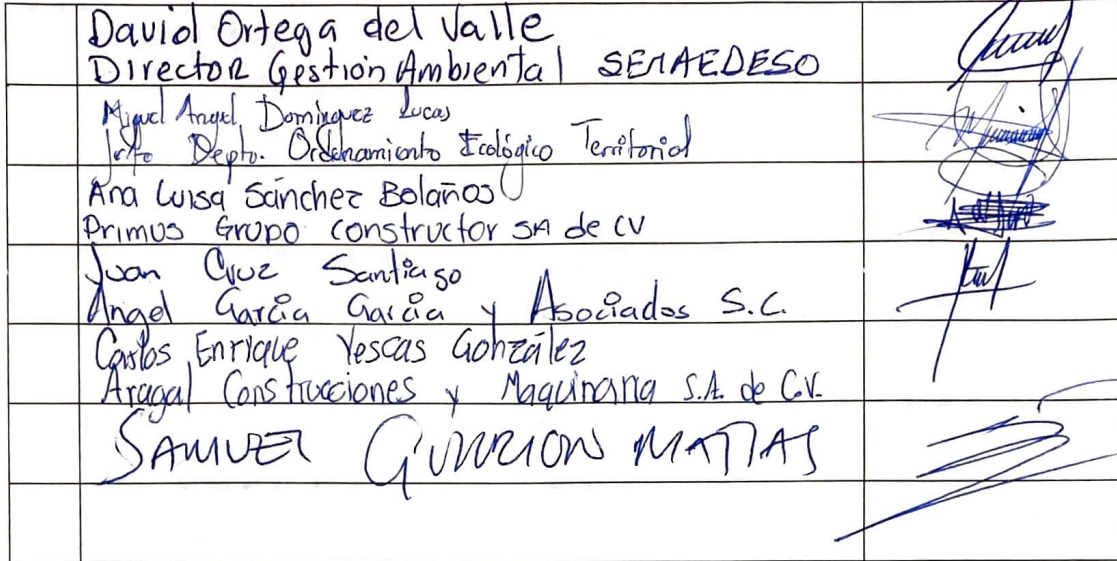 David Ortega del Valle
Director Gestión Ambiental SEMAEDESO
Miguel Angel Dominguez Lucas
Jefe Depto. Ordenamiento Ecológico Territorial
Ana Luisa Sánchez Bolaños
Primus Grupo constructor SA de CV
Juan Cruz Santiago
Angel García García y Asociados S.C.
Carlos Enrique Yescas González
Aragal Construcciones y Maquinaria S.A. de C.V.
SAMUEL GURRION MATIAS